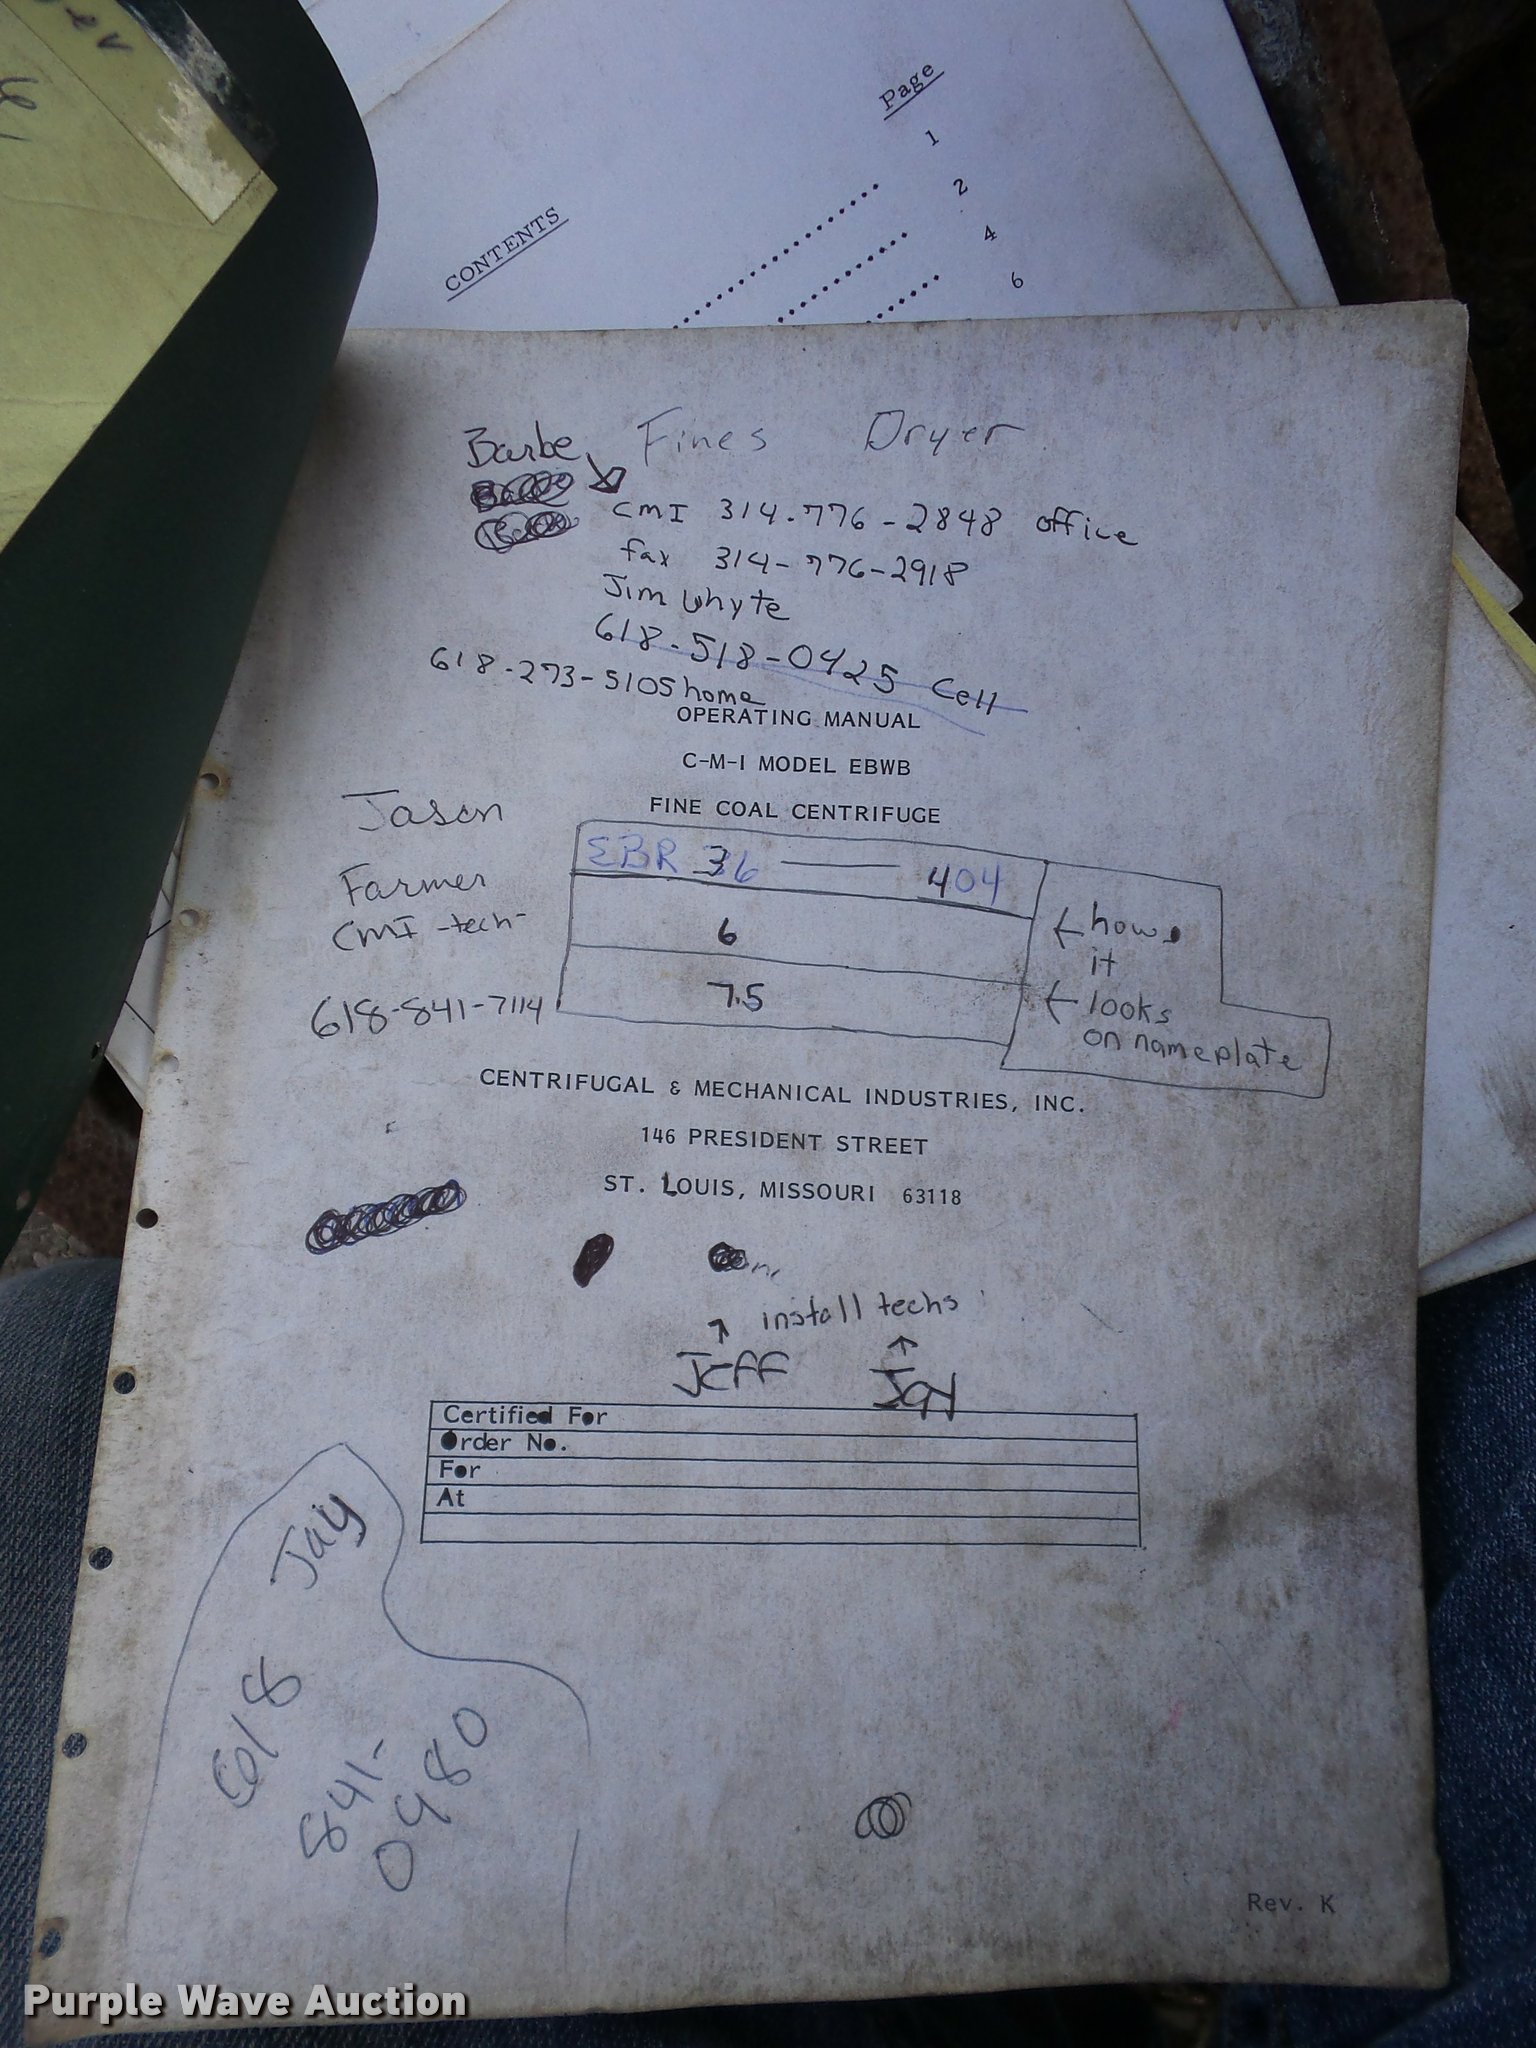 Page
1
CONTENTS
2
4
6
Fines Dryer
Barbe
CMI 314-776-2848 office
fax 314-776-2918
Jim Whyte
618-518-0425 Cell
618-273-5105 home
OPERATING MANUAL
C-M-I MODEL EBWB
FINE COAL CENTRIFUGE
Jason
Farmer
CMI -tech-
618-841-7114
EBR 36 — 404
6
7.5
← how
it
← looks
on nameplate
CENTRIFUGAL & MECHANICAL INDUSTRIES, INC.
146 PRESIDENT STREET
ST. LOUIS, MISSOURI 63118
install techs
Jeff Jay
Certified For
Order No.
For
At
Jay
618
841-
0480
Rev. K
Purple Wave Auction